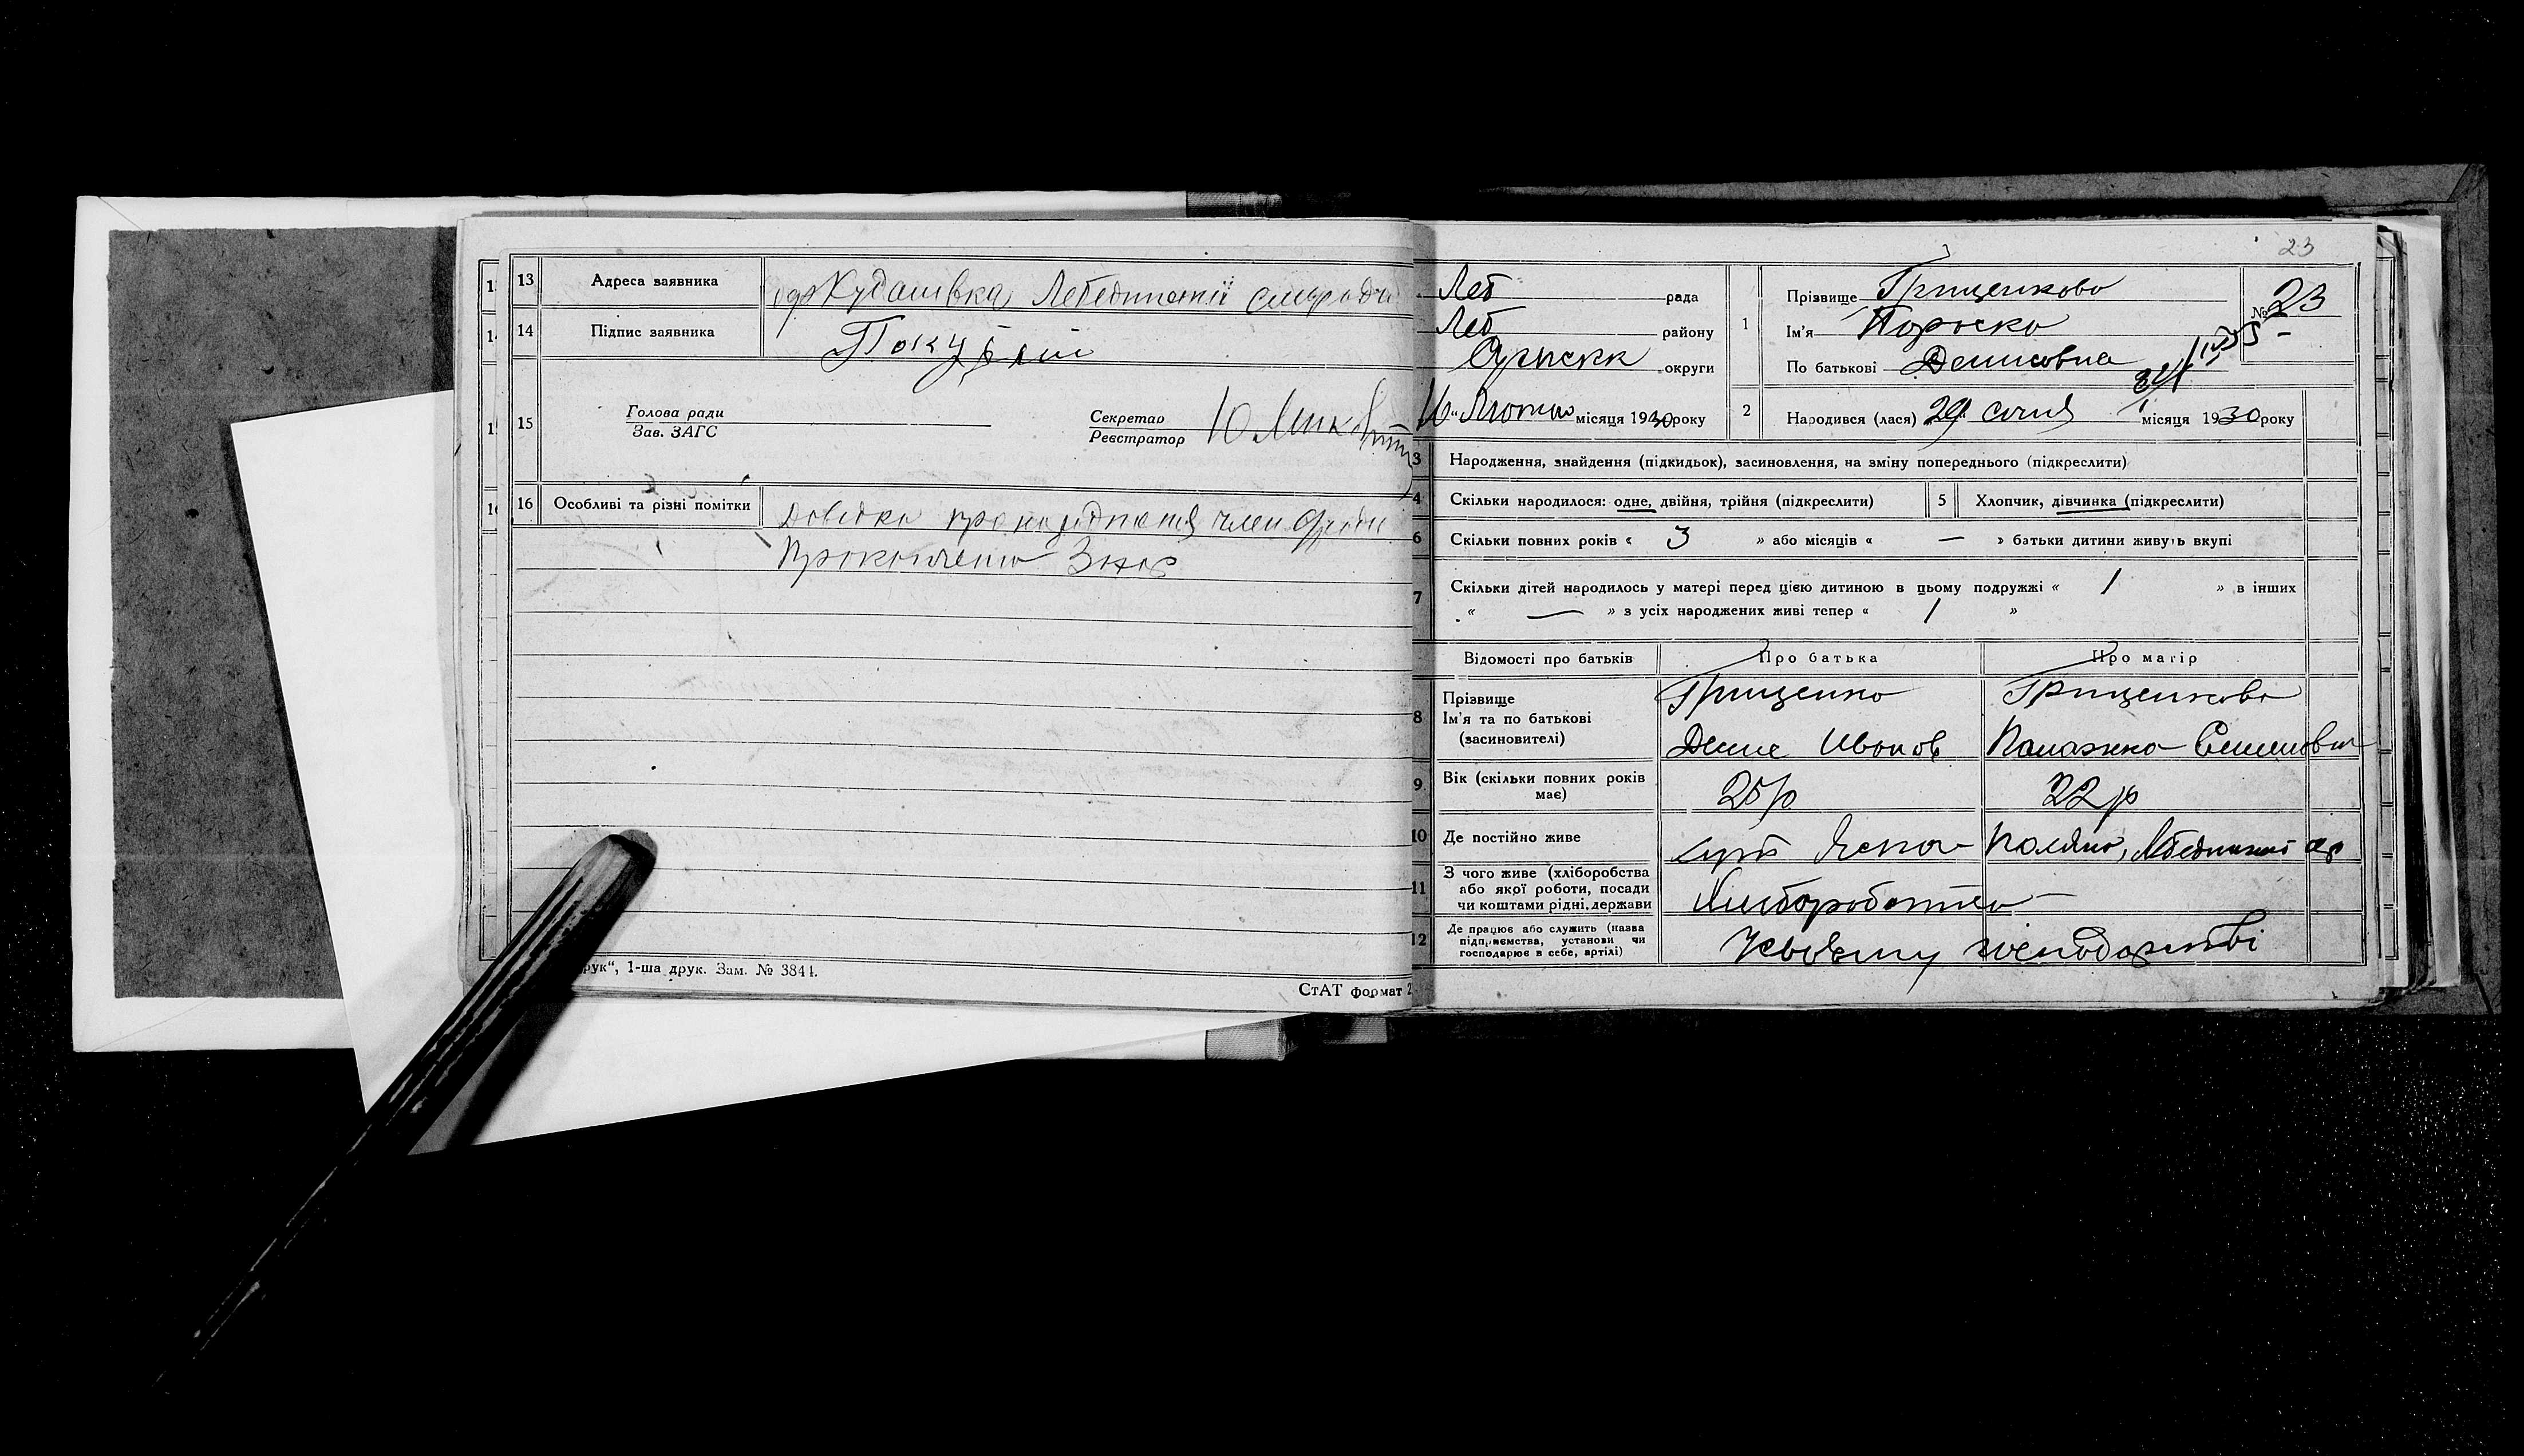 13 Адреса заявника Кудашівка Лебединської
14 Підпис заявника
15 Голова ради
Зав. ЗАГС
Секретар
Реєстратор
16 Особливі та різні помітки Довідка про народження член
Прокопченко
рук“, 1-ша друк. Зам. № 3844.
СтАТ формат 2
23
Леб рада
Леб району
округи
Лютого місяця 1930 року
1 Прізвище Грищенкова
Ім'я Параска
По батькові Денисовна
№ 23
2 Народився (лася) 29 січня місяця 1930 року
3 Народження, знайдення (підкидьок), засиновлення, на зміну попереднього (підкреслити)
4 Скільки народилося: одне, двійня, трійня (підкреслити)
5 Хлопчик, дівчинка (підкреслити)
6 Скільки повних років « 3 » або місяців « — » батьки дитини живуть вкупі
7 Скільки дітей народилось у матері перед цією дитиною в цьому подружжі « 1 » в інших
« — » з усіх народжених живі тепер « 1 »
Відомості про батьків Про батька Про матір
8 Прізвище
Ім'я та по батькові
(засиновителі)
Грищенко
Денис Иванов
Грищенкова
Палажка Семеновна
9 Вік (скільки повних років
має)
25 р
22 р
10 Де постійно живе хут Ясна Поляна,
11 З чого живе (хліборобства
або якої роботи, посади
чи коштами рідні, держави
Хліборобства
12 Де працює або служить (назва
підприємства, установи чи
господарює в себе, артілі)
У своєму господарстві